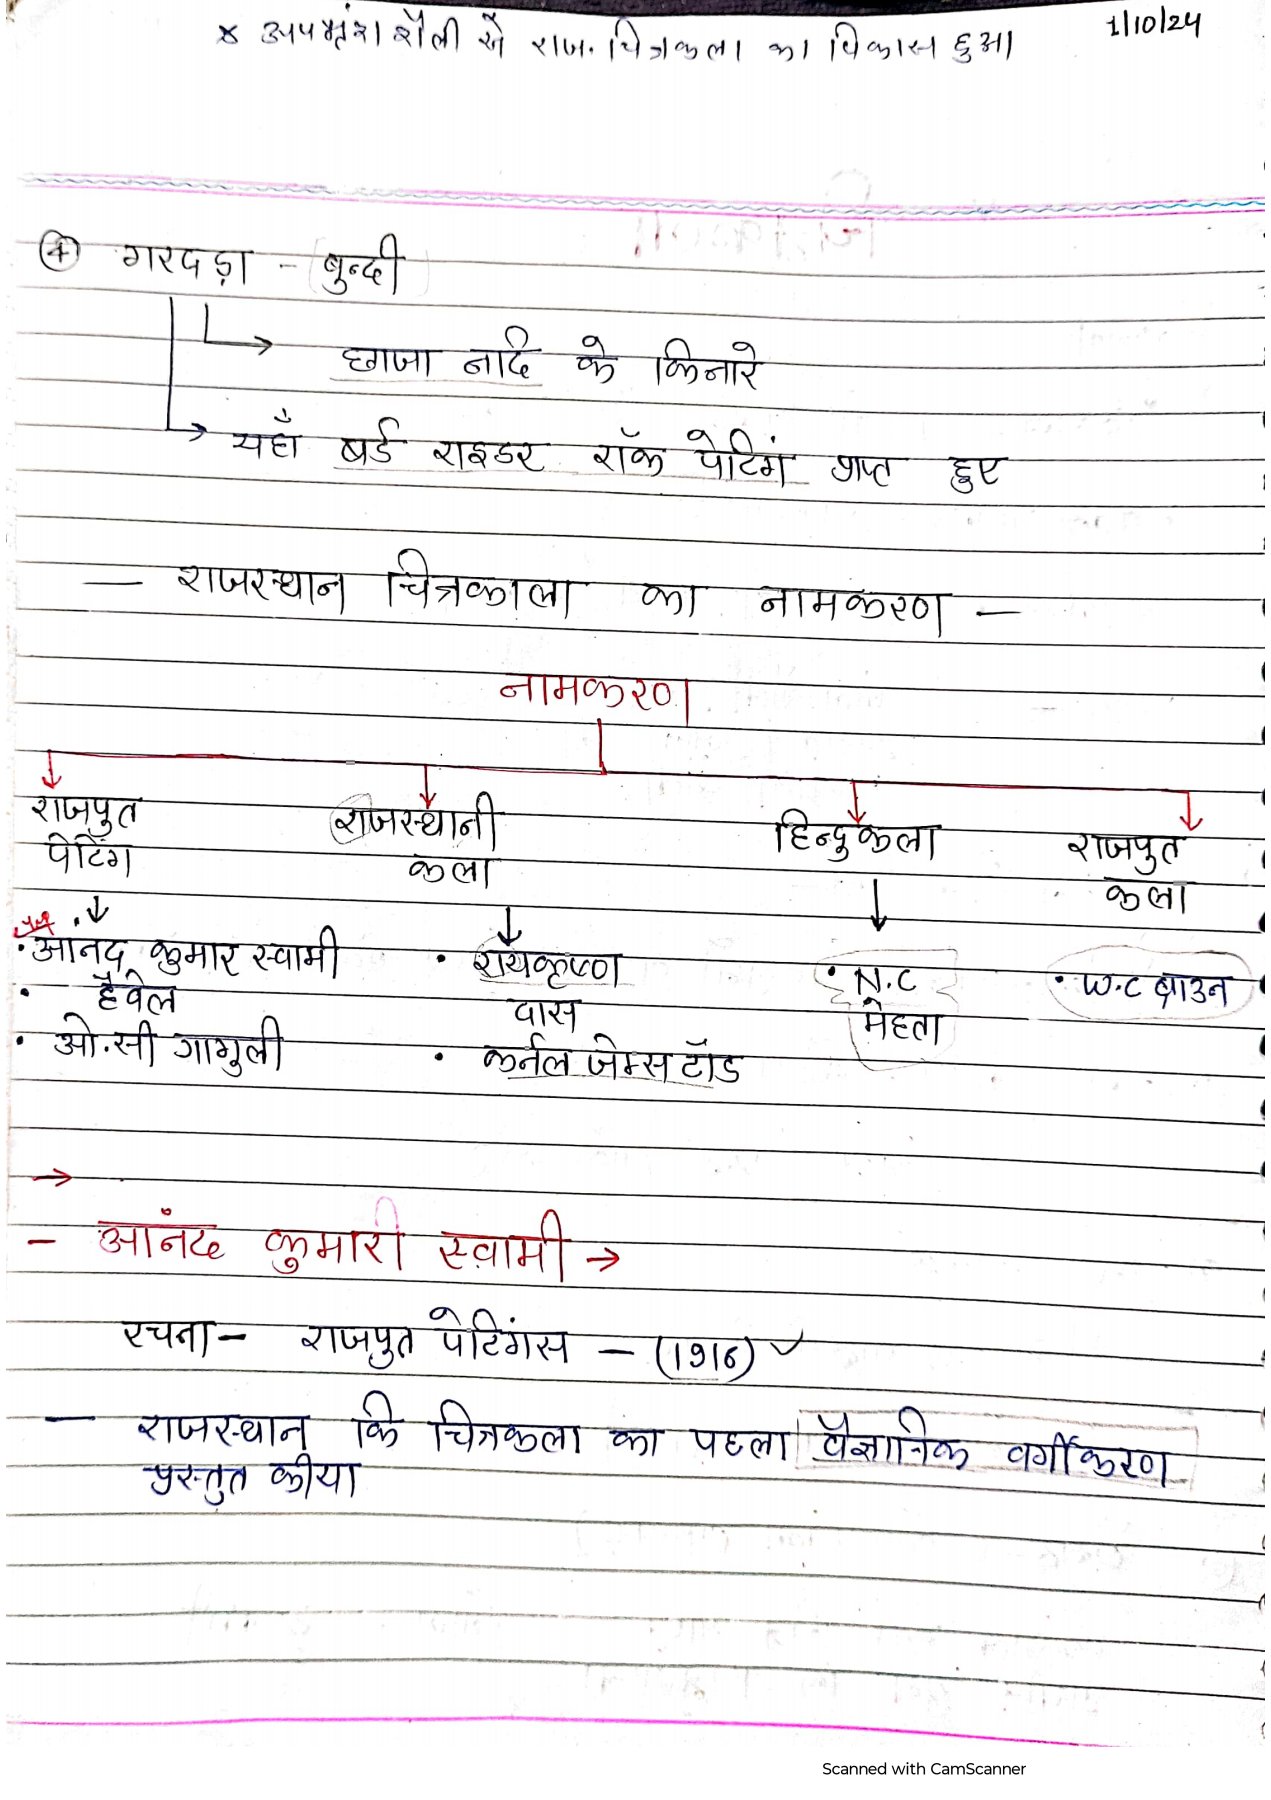 * अपभ्रंश शैली से राज. चित्रकला का विकास हुआ
1/10/24
④ गरदड़ा - बुन्दी
छाजा नदि के किनारे
यहाँ बर्ड राइडर रॉक पेटिंग प्राप्त हुए
— राजस्थान चित्रकाला का नामकरण —
नामकरण
राजपुत पेटिंग
राजस्थानी कला
हिन्दुकला
राजपुत कला
• आंनद कुमार स्वामी
• हैवेल
• ओ.सी गागुली
• रायकृष्ण दास
• कर्नल जेम्स टॉड
• N.C मेहता
• W.C ब्राउन
→
- आंनद कुमारी स्वामी →
रचना - राजपुत पेटिंगस - (1916) ✓
— राजस्थान कि चित्रकला का पहला वैज्ञानिक वर्गीकरण
प्रस्तुत कीया
Scanned with CamScanner